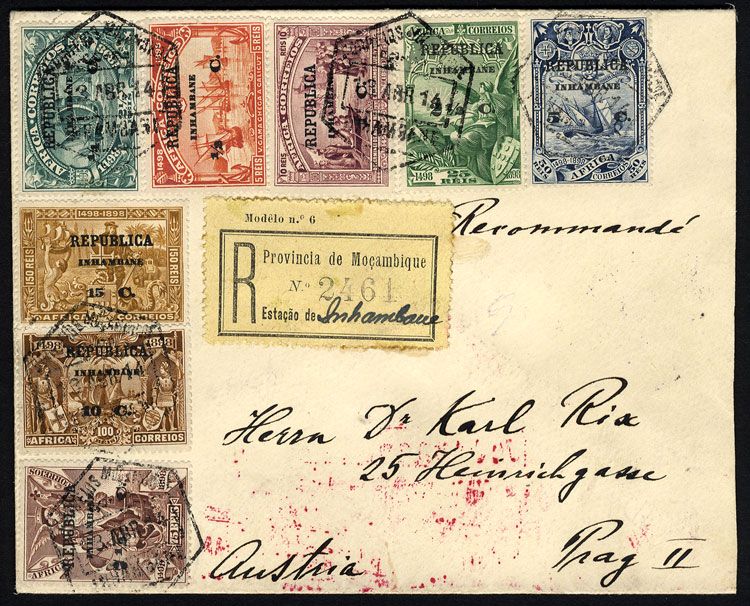 AFRICA CORREIOS
REPUBLICA
INHAMBANE
1498
ABR 14
1498 1898
V. GAMA CHEGA A CALICUT
5 REIS
REPUBLICA
INHAMBANE
C.
AFRICA
10 REIS
REPUBLICA
INHAMBANE
C.
ABR 14
AFRICA CORREIOS
REPUBLICA
INHAMBANE
C.
1498 25 1898
REIS
REPUBLICA
INHAMBANE
5 C.
1498-1898
50 AFRICA 50
REIS CORREIOS REIS
1498-1898
150 REIS 150 REIS
REPUBLICA
INHAMBANE
15 C.
AFRICA CORREIOS
1498 1898
REPUBLICA
INHAMBANE
10 C.
AFRICA 100 CORREIOS
CORREIOS
REPUBLICA
INHAMBANE
C.
75 REIS
AFRICA
Modélo n.º 6
R
Provincia de Moçambique
Nº 2461
Estação de Inhambane
Recommandé
Herrn Dr Karl Rix
25 Heinrichgasse
Austria Prag II